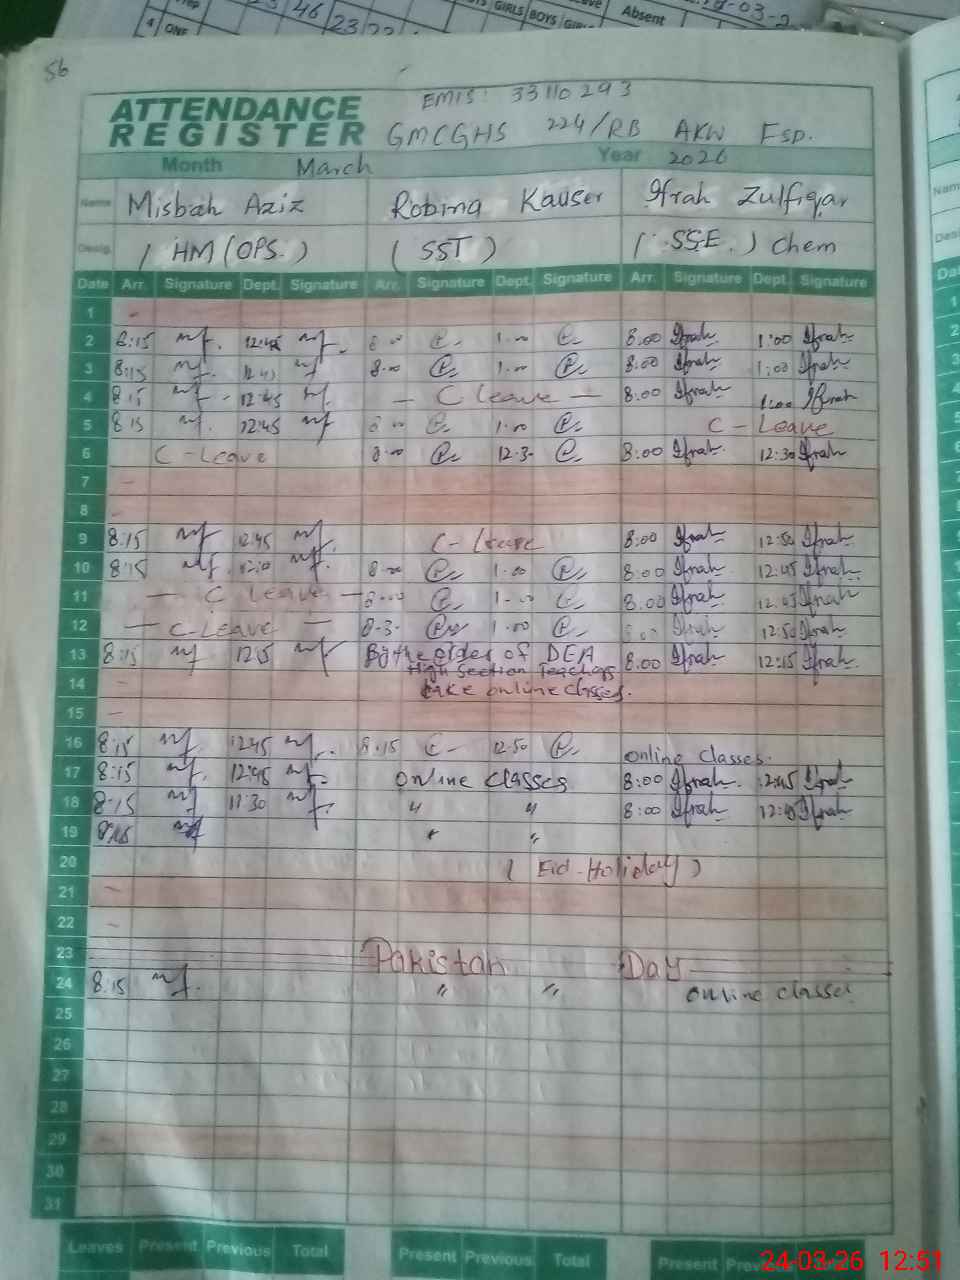 56
46 23 GIRLS BOYS Absent -03-2
4 ONE
EMIS: 33110293
ATTENDANCE
REGISTER GMCGHS 224/RB AKW Fsp.
Month March Year 2026
Name Misbah Aziz Robina Kauser Ifrah Zulfiqar
Desig. ( HM (OPS.) ( SST ) ( SSE. ) Chem
Date Arr. Signature Dept. Signature Arr. Signature Dept. Signature Arr. Signature Dept. Signature
1 -
2 8:15 12:45 8:00 1:00 8:00 Ifrah 1:00 Ifrah
3 8:15 12:45 8:00 1:00 8:00 Ifrah 1:00 Ifrah
4 8:15 12:45 - C leave - 8:00 Ifrah 1:00 Ifrah
5 8:15 12:45 8:00 1:00 C - Leave
6 C - Leave 8:00 12:30 8:00 Ifrah 12:30 Ifrah
7 -
8 -
9 8:15 12:45 C - Leave 8:00 Ifrah 12:50 Ifrah
10 8:15 8:00 1:00 8:00 Ifrah 12:45 Ifrah
11 - C Leave - 8:00 1:00 8:00 Ifrah 12:45 Ifrah
12 - C-Leave - 8:30 1:00 Ifrah 12:50 Ifrah
13 8:15 12:15 By the order of DEA 8:00 Ifrah 12:15 Ifrah.
High Section Teachers
14 - take online classes.
15 -
16 8:15 12:45 8:15 12:50 online classes.
17 8:15 12:45 online classes 8:00 Ifrah 12:45 Ifrah
18 8:15 11:30 " " 8:00 Ifrah 12:40 Ifrah
19 8:15 " "
20 ( Eid-Holiday )
21 -
22 -
23 Pakistan Day
24 8:15 " " online classes
25
26
27
28
29
30
31
Leaves Present Previous Total Present Previous Total Present
24-03-26 12:51